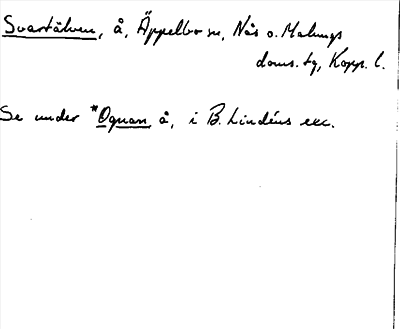 Svartälven, å, Äppelbo sn, Nås o. Malungs
doms. tg, Kopp. l.
Se under *Ognan å, i B. Lindéns exc.